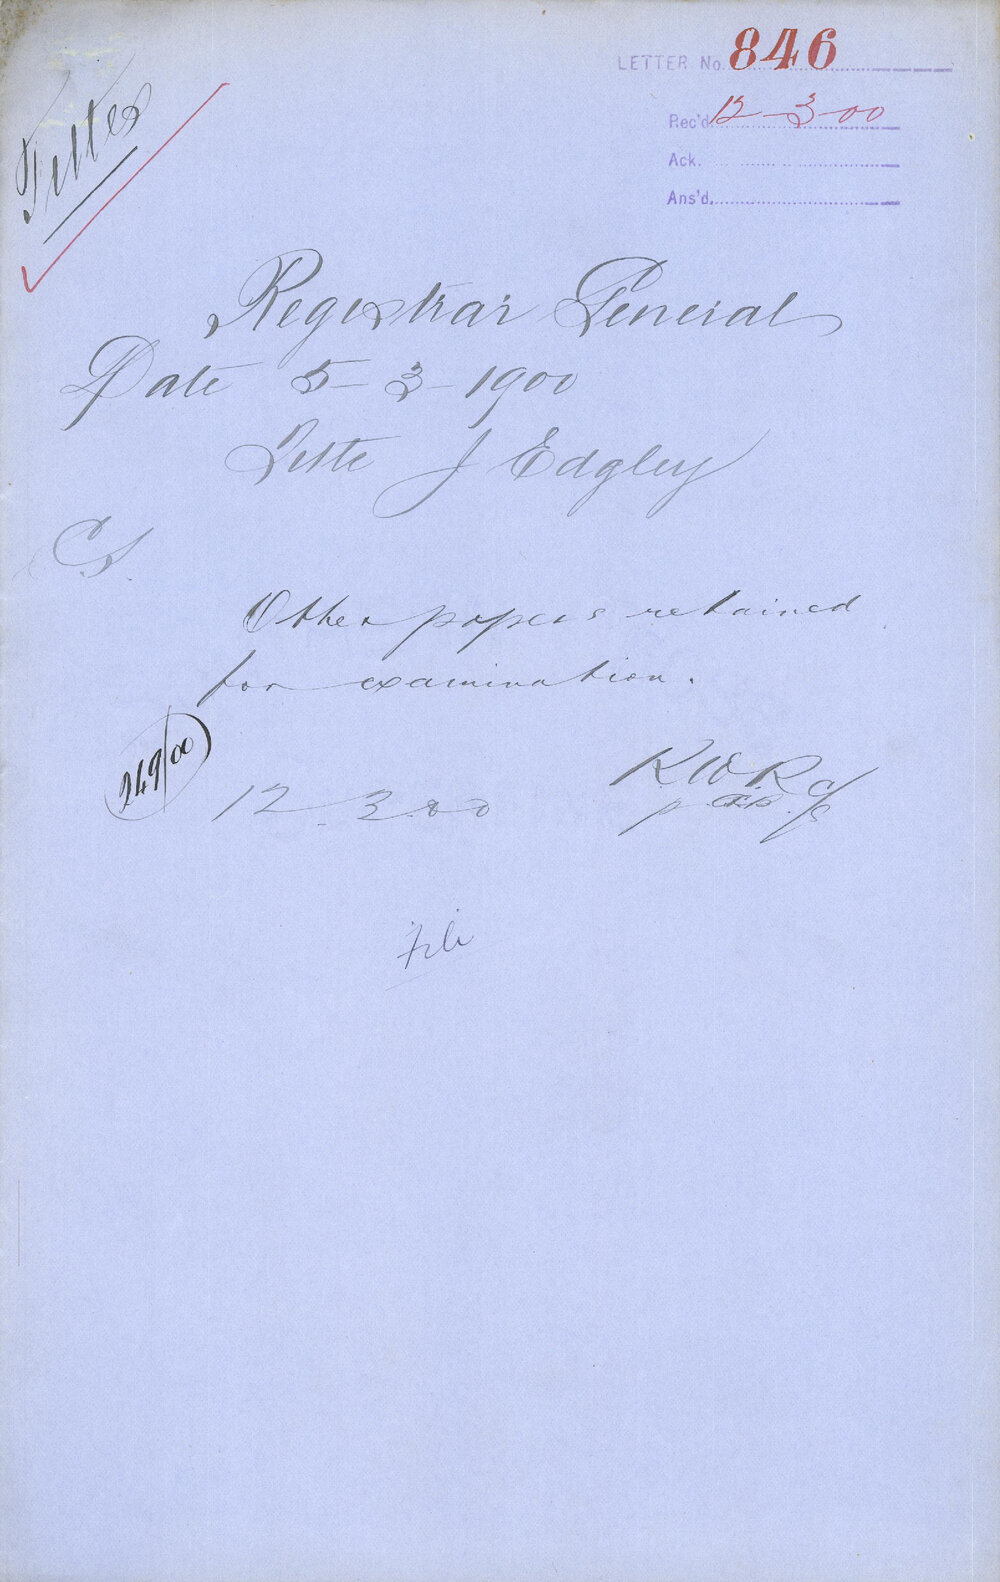 LETTER No. 846
Rec'd 12-3-00
Ack.
Ans'd.
Titles
Registrar General
Date 5-3-1900
Title J Edgley
CS.
Other papers retained
for examination.
249/00
12.3.00
RWR
File